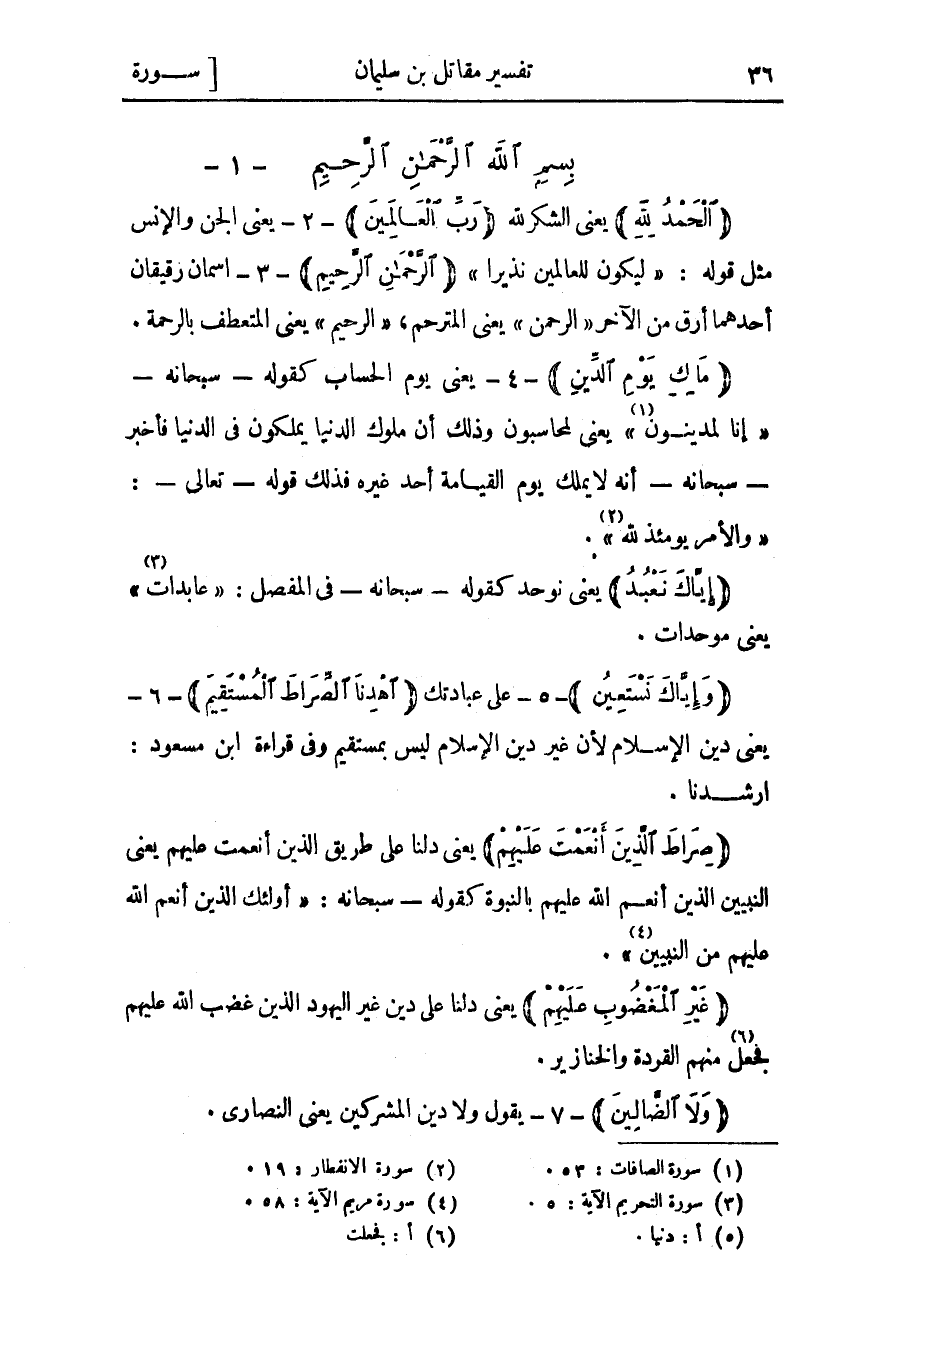 ٣٦ تفسير مقاتل بن سليمان [ ســورة
بِسمِ ٱللَّه ٱلرَّحْمَٰنِ ٱلرَّحِيمِ – ١ –
﴿ ٱلْحَمْدُ لِلَّهِ ﴾ يعنى الشكر لله ﴿ رَبِّ ٱلْعَـالَمِينَ ﴾ – ٢ – يعنى الجن والإنس
مثل قوله : « ليكون للعالمين نذيرا » ﴿ ٱلرَّحْمَٰنِ ٱلرَّحِيمِ ﴾ – ٣ – اسمان رقيقان
أحدهما أرق من الآخر « الرحمن » يعنى المترحم ، « الرحيم » يعنى المتعطف بالرحمة .
﴿ مَالِكِ يَوْمِ ٱلدِّينِ ﴾ – ٤ – يعنى يوم الحساب كقوله – سبحانه –
« إنا لمدينــون (١) » يعنى لمحاسبون وذلك أن ملوك الدنيا يملكون فى الدنيا فأخبر
– سبحانه – أنه لا يملك يوم القيــامة أحد غيره فذلك قوله – تعالى – :
« والأمر يومئذ لله (٢) » .
﴿ إِيَّاكَ نَعْبُدُ ﴾ يعنى نوحد كقوله – سبحانه – فى المفصل : « عابدات (٣) »
يعنى موحدات .
﴿ وَإِيَّاكَ نَسْتَعِينُ ﴾ – ٥ – على عبادتك ﴿ ٱهْدِنَا ٱلصِّرَاطَ ٱلْمُسْتَقِيمَ ﴾ – ٦ –
يعنى دين الإســلام لأن غير دين الإسلام ليس بمستقيم وفى قراءة ابن مسعود :
ارشــدنا .
﴿ صِرَاطَ ٱلَّذِينَ أَنْعَمْتَ عَلَيْهِمْ ﴾ يعنى دلنا على طريق الذين أنعمت عليهم يعنى
النبيين الذين أنعــم الله عليهم بالنبوة كقوله – سبحانه : « أولئك الذين أنعم الله
عليهم من النبيين (٤) » .
﴿ غَيْرِ ٱلْمَغْضُوبِ عَلَيْهِمْ ﴾ يعنى دلنا على دين غير اليهود الذين غضب الله عليهم
فجعل (٦) منهم القردة والخنازير .
﴿ وَلَا ٱلضَّالِينَ ﴾ – ٧ – يقول ولا دين المشركين يعنى النصارى .
(١) سورة الصافات : ٥٣ . (٢) سورة الانفطار : ١٩ .
(٣) سورة التحريم الآية : ٥ . (٤) سورة مريم الآية : ٥٨ .
(٥) أ : دنيا . (٦) أ : فجعلت